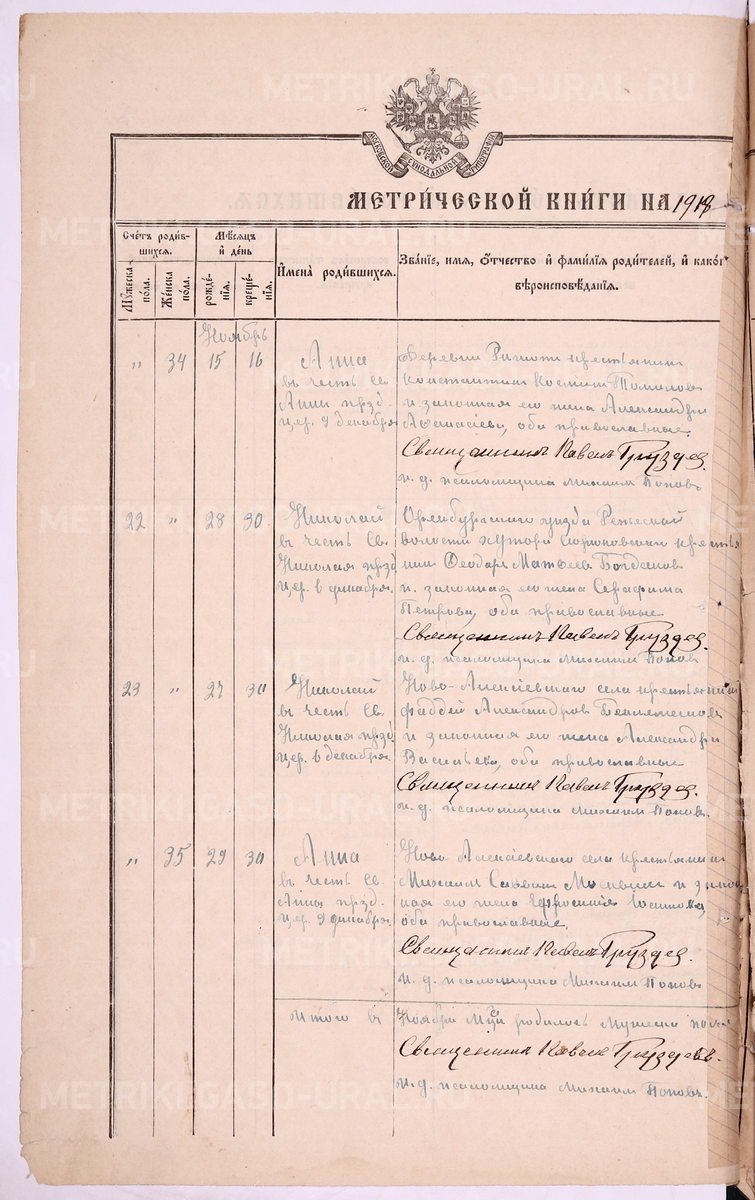 МОСКОВСКОЙ СѶНОДАЛЬНОЙ ТИПОГРАФІИ
МЕТРИ́ЧЕСКОЙ КНИ́ГИ НА 1918
Сче́тъ роди́вшихсѧ.
Мꙋ́жеска по́ла.
Же́нска по́ла.
Мѣ́сѧцъ и҆ де́нь
рожде́нїѧ.
креще́нїѧ.
И҆мена̀ роди́вшихсѧ.
Зва́нїе, и҆мѧ, ѻ҆́тчество и҆ фами́лїѧ роди́телей, и҆ како́г
вѣроисповѣ́данїѧ.
Ноябрь
„ 34 15 16
Анна
въ честь св.
Анны празд.
цер. 9 декабря
Деревни крестьянинъ
Константинъ Косминъ Томиловъ
и законная его жена Александра
Афанасіева, оба православные.
Священникъ Павелъ Груздев.
и. д. псаломщика Михаилъ Поповъ
22 „ 28 30
Николай
въ честь Св.
Николая празд
цер. 6 декабря.
Оренбургскаго уѣзда
волости хутора крестья
нинъ Ѳеодоръ Матѳеевъ Богдановъ
и законная его жена Серафима
Петрова, оба православные
Священникъ Павелъ Груздев.
и. д. псаломщика Михаилъ Поповъ
23 „ 27 30
Николай
въ честь Св.
Николая празд
цер. 6 декабря.
Ново-Алексіевскаго села крестьянинъ
Фаддей Александровъ
и законная его жена Александра
Васильева, оба православные
Священникъ Павелъ Груздев.
и. д. псаломщика Михаилъ Поповъ.
„ 35 29 30
Анна
въ честь св.
Анны празд.
цер. 9 декабря.
Ново-Алексіевскаго села крестьянинъ
Михаилъ Саввинъ и закон
ная его жена Ефросинія
оба православные.
Священникъ Павелъ Груздев.
и. д. псаломщика Михаилъ Поповъ
Итого въ Ноябрѣ м-цѣ родилось мужеска пола
Священникъ Павелъ Груздевъ.
и. д. псаломщика Михаилъ Поповъ.
METRIKI.GASO-URAL.RU